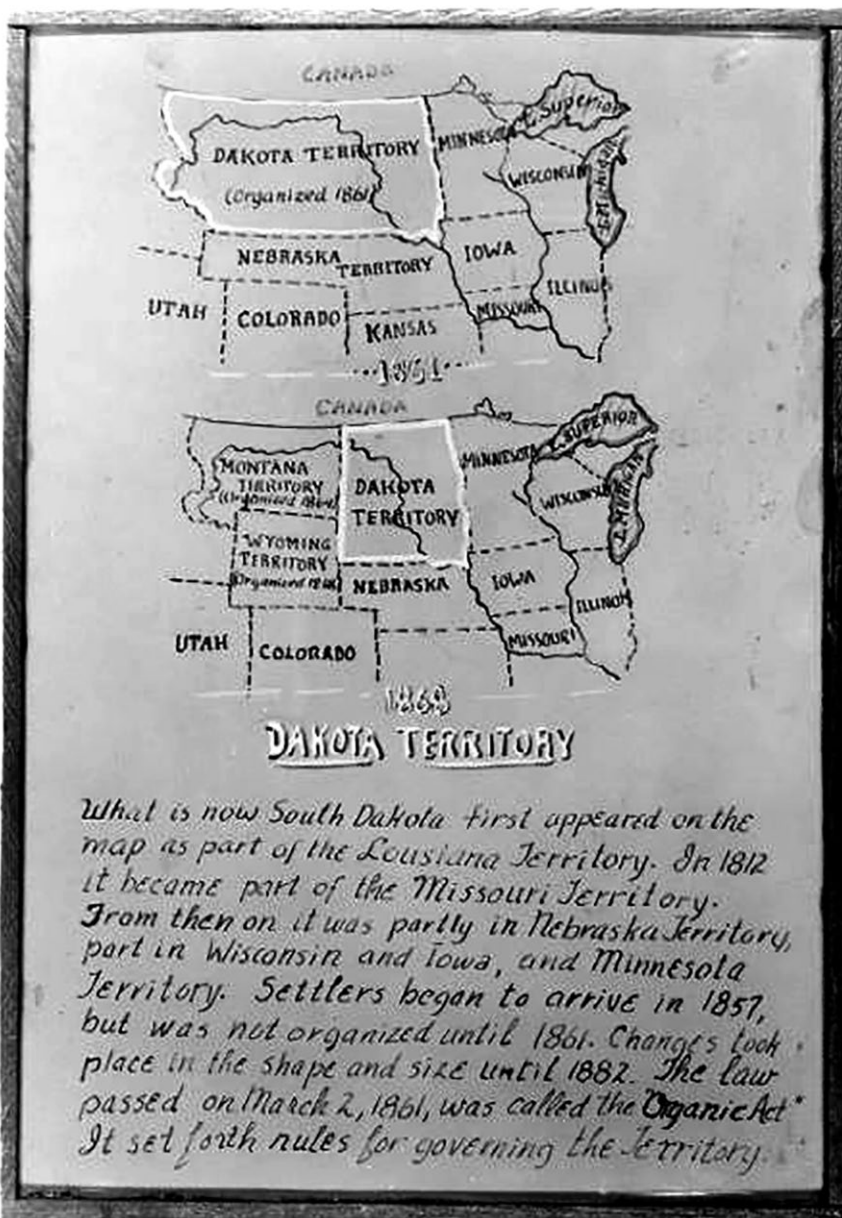 CANADA
L. Superior
MINNESOTA
DAKOTA TERRITORY
WISCONSIN
(Organized 1861)
NEBRASKA
TERRITORY
IOWA
ILLINOIS
UTAH
COLORADO
MISSOURI
KANSAS
1861
CANADA
L. SUPERIOR
MINNESOTA
MONTANA
TERRITORY
(Organized 1864)
DAKOTA
TERRITORY
WISCONSIN
L. MICHIGAN
WYOMING
TERRITORY
NEBRASKA
IOWA
ILLINOIS
UTAH
COLORADO
MISSOURI
1868
DAKOTA TERRITORY
What is now South Dakota first appeared on the
map as part of the Lousiana Territory. In 1812
it became part of the Missouri Territory.
From then on it was partly in Nebraska Territory,
part in Wisconsin and Iowa, and Minnesota
Territory. Settlers began to arrive in 1857,
but was not organized until 1861. Changes took
place in the shape and size until 1882. The law
passed on March 2, 1861, was called the "Organic Act"
It set forth rules for governing the Territory.